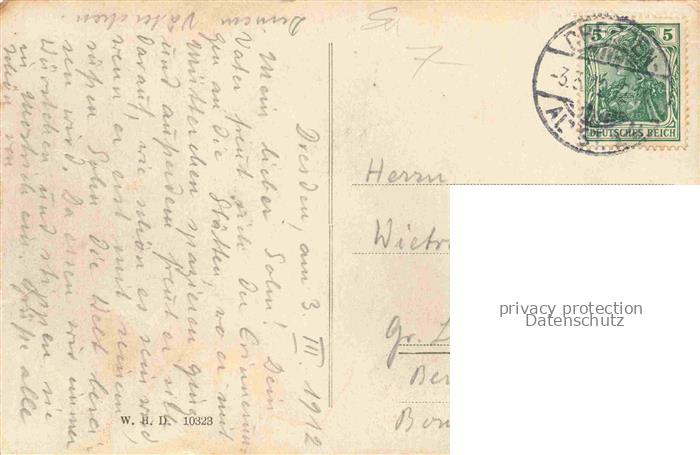 Dresden, am 3. III. 1912
Mein lieber Sohn! Dein
Vater freut sich der Erinnerun-
gen an die Stätten, wo er mit
Mütterchen spazieren ging
und außerdem freut er sich
darauf, wie schön es sein wird,
wenn er erst mit seinem
süßen Sohn die Welt berei-
sen wird. Da essen wir immer
Würstchen und stippen sie
in Mostrich ein. Grüße alle
schön von
Deinem Väterchen
W. H. D. 10323
7
5 5
DRESDEN-
-3.3
DEUTSCHES REICH
Herrn
Wietr
Gr. L
Ber
Bon
privacy protection
Datenschutz